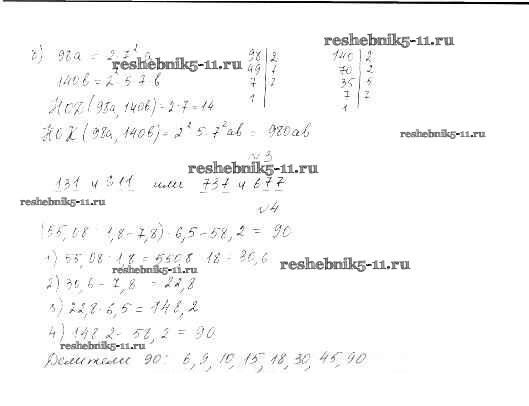 reshebnik5-11.ru
б) 98a = 2·7²·a
98 | 2
49 | 7
7 | 7
1
140 | 2
70 | 2
35 | 5
7 | 7
1
reshebnik5-11.ru
140в = 2²·5·7·в
НОД (98a, 140в) = 2·7 = 14
НОК (98a, 140в) = 2²·5·7²ав = 980ав
reshebnik5-11.ru
№3
reshebnik5-11.ru
131 и 311 или 737 и 677
reshebnik5-11.ru
№4
(55,08 : 1,8 − 7,8) · 6,5 − 58,2 = 90
1) 55,08 : 1,8 = 550,8 : 18 = 30,6
reshebnik5-11.ru
reshebnik5-11.ru
2) 30,6 − 7,8 = 22,8
3) 22,8 · 6,5 = 148,2
4) 148,2 − 58,2 = 90
reshebnik5-11.ru
Делители 90: 6, 9, 10, 15, 18, 30, 45, 90